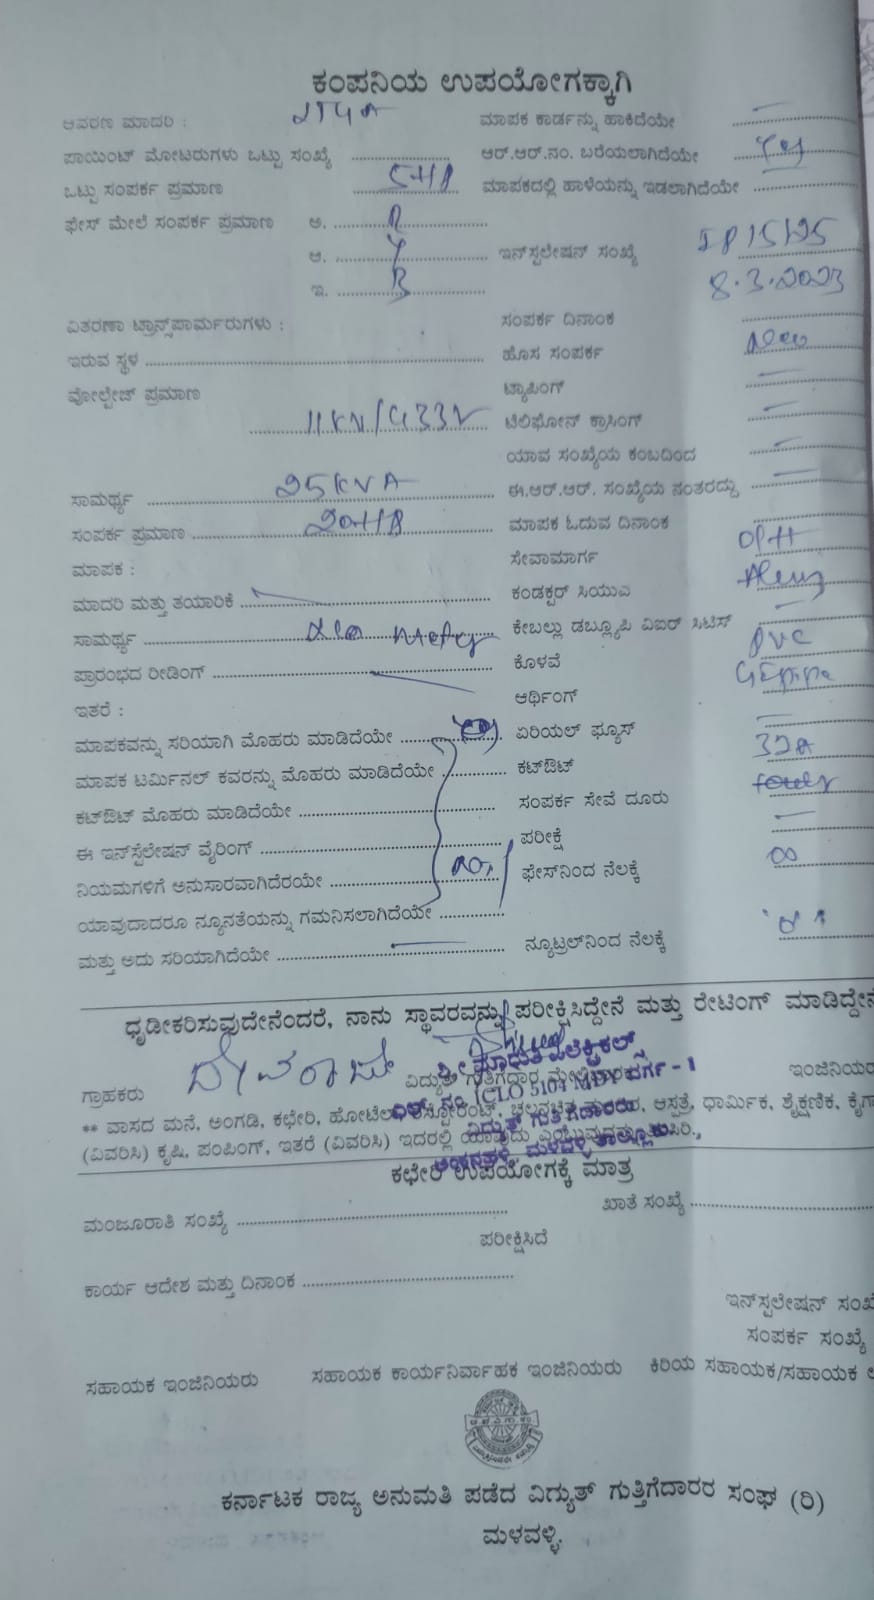 ಕಂಪನಿಯ ಉಪಯೋಗಕ್ಕಾಗಿ
ಆವರಣ ಮಾದರಿ : ಮಾಪಕ ಕಾರ್ಡನ್ನು ಹಾಕಿದೆಯೇ
ಪಾಯಿಂಟ್ ಮೋಟರುಗಳು ಒಟ್ಟು ಸಂಖ್ಯೆ ಆರ್.ಆರ್.ನಂ. ಬರೆಯಲಾಗಿದೆಯೇ Yes
ಒಟ್ಟು ಸಂಪರ್ಕ ಪ್ರಮಾಣ 5HP ಮಾಪಕದಲ್ಲಿ ಹಾಳೆಯನ್ನು ಇಡಲಾಗಿದೆಯೇ
ಫೇಸ್ ಮೇಲೆ ಸಂಪರ್ಕ ಪ್ರಮಾಣ ಅ. R
ಆ. Y ಇನ್‌ಸ್ಟಲೇಷನ್ ಸಂಖ್ಯೆ
ಇ. B 8.3.2023
ವಿತರಣಾ ಟ್ರಾನ್ಸ್‌ಪಾರ್ಮರುಗಳು : ಸಂಪರ್ಕ ದಿನಾಂಕ
ಇರುವ ಸ್ಥಳ ಹೊಸ ಸಂಪರ್ಕ New
ವೋಲ್ಟೇಜ್ ಪ್ರಮಾಣ ಟ್ಯಾಪಿಂಗ್
11KV/433V ಟೆಲಿಫೋನ್ ಕ್ರಾಸಿಂಗ್
ಯಾವ ಸಂಖ್ಯೆಯ ಕಂಬದಿಂದ
ಸಾಮರ್ಥ್ಯ 25KVA ಈ.ಆರ್.ಆರ್. ಸಂಖ್ಯೆಯ ನಂತರದ್ದು
ಸಂಪರ್ಕ ಪ್ರಮಾಣ 20HP ಮಾಪಕ ಓದುವ ದಿನಾಂಕ
ಮಾಪಕ : ಸೇವಾಮಾರ್ಗ OPH
ಮಾದರಿ ಮತ್ತು ತಯಾರಿಕೆ ಕಂಡಕ್ಟರ್ ಸಿಯುಎ
ಸಾಮರ್ಥ್ಯ ಕೇಬಲ್ಲು ಡಬ್ಲ್ಯೂಪಿ ವಿಐರ್ ಸಿಟಿಸ್
ಪ್ರಾರಂಭದ ರೀಡಿಂಗ್ ಕೊಳವೆ PVC
ಇತರೆ : ಆರ್ಥಿಂಗ್
ಮಾಪಕವನ್ನು ಸರಿಯಾಗಿ ಮೊಹರು ಮಾಡಿದೆಯೇ Yes ಏರಿಯಲ್ ಫ್ಯೂಸ್
ಮಾಪಕ ಟರ್ಮಿನಲ್ ಕವರನ್ನು ಮೊಹರು ಮಾಡಿದೆಯೇ ಕಟ್‌ಔಟ್ 32A
ಕಟ್‌ಔಟ್ ಮೊಹರು ಮಾಡಿದೆಯೇ ಸಂಪರ್ಕ ಸೇವೆ ದೂರು
ಈ ಇನ್‌ಸ್ಟೆಲೇಷನ್ ವೈರಿಂಗ್ ಪರೀಕ್ಷೆ
ನಿಯಮಗಳಿಗೆ ಅನುಸಾರವಾಗಿದೆರಯೇ ಫೇಸ್‌ನಿಂದ ನೆಲಕ್ಕೆ ∞
ಯಾವುದಾದರೂ ನ್ಯೂನತೆಯನ್ನು ಗಮನಿಸಲಾಗಿದೆಯೇ
ಮತ್ತು ಅದು ಸರಿಯಾಗಿದೆಯೇ ನ್ಯೂಟ್ರಲ್‌ನಿಂದ ನೆಲಕ್ಕೆ
ಧೃಡೀಕರಿಸುವುದೇನೆಂದರೆ, ನಾನು ಸ್ಥಾವರವನ್ನು ಪರೀಕ್ಷಿಸಿದ್ದೇನೆ ಮತ್ತು ರೇಟಿಂಗ್ ಮಾಡಿದ್ದೇನೆ
ದೇವರಾಜು ಶ್ರೀ ಮಾರುತಿ ಎಲೆಕ್ಟ್ರಿಕಲ್ಸ್
ಗ್ರಾಹಕರು ವಿದ್ಯುತ್ ಗುತ್ತಿಗೆದಾರ ಇಂಜಿನಿಯರ
** ವಾಸದ ಮನೆ, ಅಂಗಡಿ, ಕಛೇರಿ, ಹೋಟೆಲ್, ಆಸ್ಪತ್ರೆ, ಧಾರ್ಮಿಕ, ಶೈಕ್ಷಣಿಕ, ಕೈಗಾ
(ವಿವರಿಸಿ) ಕೃಷಿ, ಪಂಪಿಂಗ್, ಇತರೆ (ವಿವರಿಸಿ) ಇದರಲ್ಲಿ ಯಾವುದು
ವಿದ್ಯುತ್ ಗುತ್ತಿಗೆದಾರರು
ಕಛೇರಿ ಉಪಯೋಗಕ್ಕೆ ಮಾತ್ರ
ಮಂಜೂರಾತಿ ಸಂಖ್ಯೆ ಖಾತೆ ಸಂಖ್ಯೆ
ಪರೀಕ್ಷಿಸಿದೆ
ಕಾರ್ಯ ಆದೇಶ ಮತ್ತು ದಿನಾಂಕ
ಇನ್‌ಸ್ಟಲೇಷನ್ ಸಂಖ್ಯೆ
ಸಂಪರ್ಕ ಸಂಖ್ಯೆ
ಸಹಾಯಕ ಇಂಜಿನಿಯರು ಸಹಾಯಕ ಕಾರ್ಯನಿರ್ವಾಹಕ ಇಂಜಿನಿಯರು ಕಿರಿಯ ಸಹಾಯಕ/ಸಹಾಯಕ
ಕರ್ನಾಟಕ ರಾಜ್ಯ ಅನುಮತಿ ಪಡೆದ ವಿದ್ಯುತ್ ಗುತ್ತಿಗೆದಾರರ ಸಂಘ (ರಿ)
ಮಳವಳ್ಳಿ.